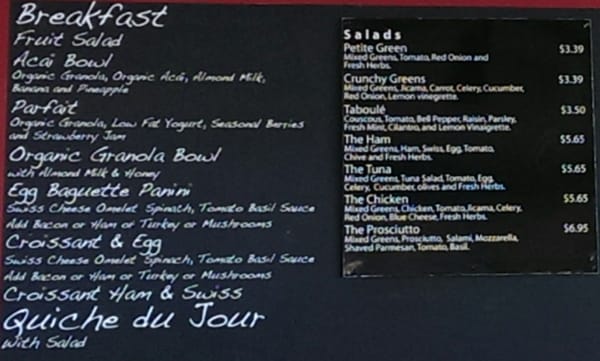 Breakfast
Fruit Salad
Acai Bowl
Organic Granola, Organic Acai, Almond Milk,
Banana and Pineapple
Parfait
Organic Granola, Low Fat Yogurt, Seasonal Berries
and Strawberry Jam
Organic Granola Bowl
with Almond Milk & Honey
Egg Baguette Panini
Swiss Cheese Omelet Spinach, Tomato Basil Sauce
Add Bacon or Ham or Turkey or Mushrooms
Croissant & Egg
Swiss Cheese Omelet Spinach, Tomato Basil Sauce
Add Bacon or Ham or Turkey or Mushrooms
Croissant Ham & Swiss
Quiche du Jour
With Salad
Salads
Petite Green $3.39
Mixed Greens, Tomato, Red Onion and
Fresh Herbs.
Crunchy Greens $3.39
Mixed Greens, Jicama, Carrot, Celery, Cucumber,
Red Onion, Lemon vinegrette.
Taboulé $3.50
Couscous, Tomato, Bell Pepper, Raisin, Parsley,
Fresh Mint, Cilantro, and Lemon Vinaigrette.
The Ham $5.65
Mixed Greens, Ham, Swiss, Egg, Tomato,
Chive and Fresh Herbs.
The Tuna $5.65
Mixed Greens, Tuna Salad, Tomato, Egg,
Celery, Cucumber, olives and Fresh Herbs.
The Chicken $5.65
Mixed Greens, Chicken, Tomato, Jicama, Celery,
Red Onion, Blue Cheese, Fresh Herbs.
The Prosciutto $6.95
Mixed Greens, Prosciutto, Salami, Mozzarella,
Shaved Parmesan, Tomato, Basil.